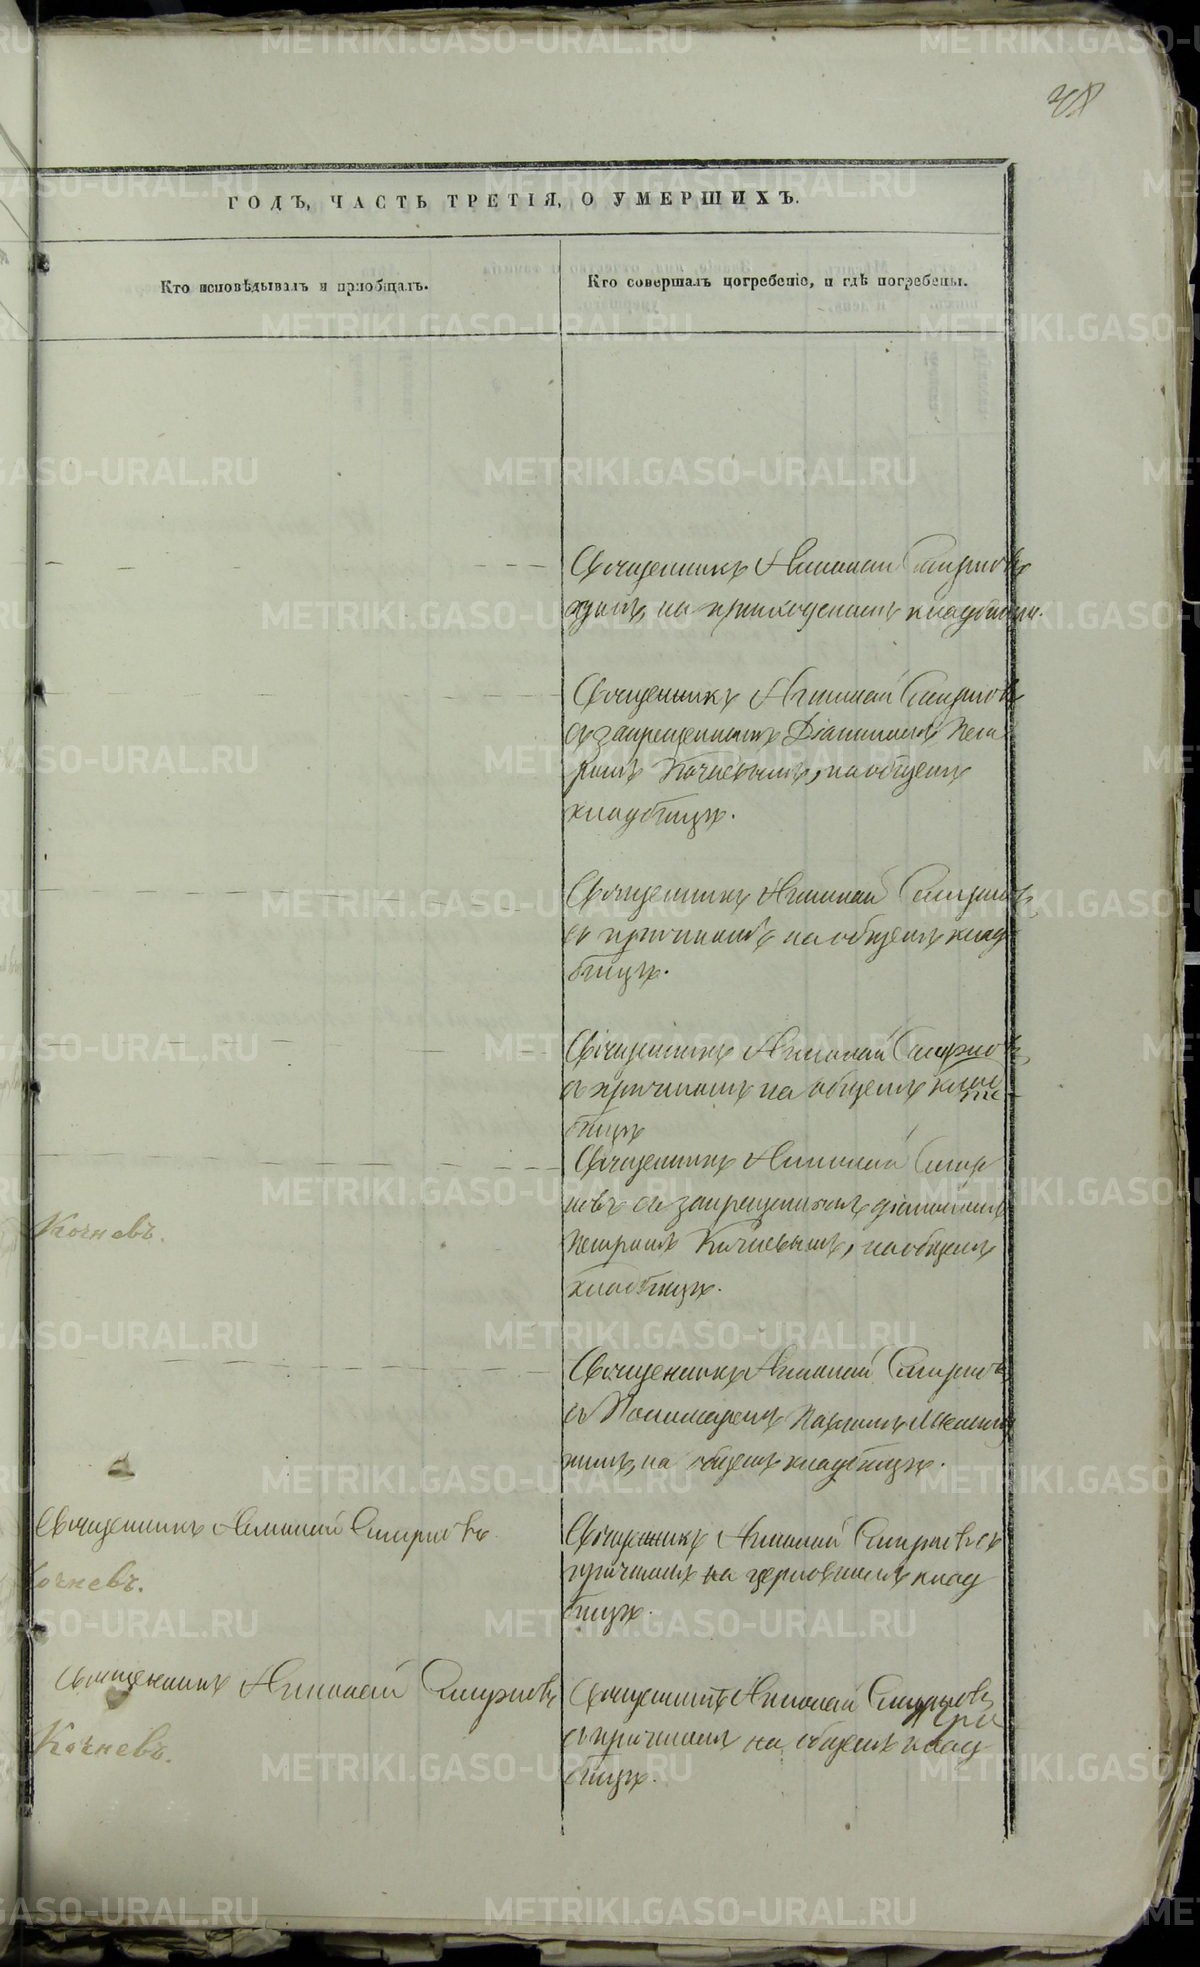 38
ГОДЪ, ЧАСТЬ ТРЕТІЯ, О УМЕРШИХЪ.
Кто исповѣдывалъ и пріобщалъ.
Кто совершалъ погребеніе, и гдѣ погребены.
Священникъ Николай Смирновъ
на приходскомъ кладбищѣ.
Священникъ Николай Смирновъ
съ запрещеннымъ Діакономъ Пет
ромъ Кочневымъ, на общемъ
кладбищѣ.
Священникъ Николай Смирновъ
съ причтомъ на общемъ клад
бищѣ.
Священникъ Николай Смирновъ
съ причтомъ на общемъ клад
бищѣ
Священникъ Николай Смир
новъ съ запрещеннымъ діакономъ
Петромъ Кочневымъ, на общемъ
кладбищѣ.
Кочневъ.
Священникъ Николай Смирновъ
съ Пономаремъ
на общемъ кладбищѣ.
Священникъ Николай Смирновъ.
Кочневъ.
Священникъ Николай Смирновъ съ
причтомъ на церковномъ клад
бищѣ.
Священникъ Николай Смирновъ
Кочневъ.
Священникъ Николай Смирновъ
съ причтомъ на общемъ клад
бищѣ.
METRIKI.GASO-URAL.RU